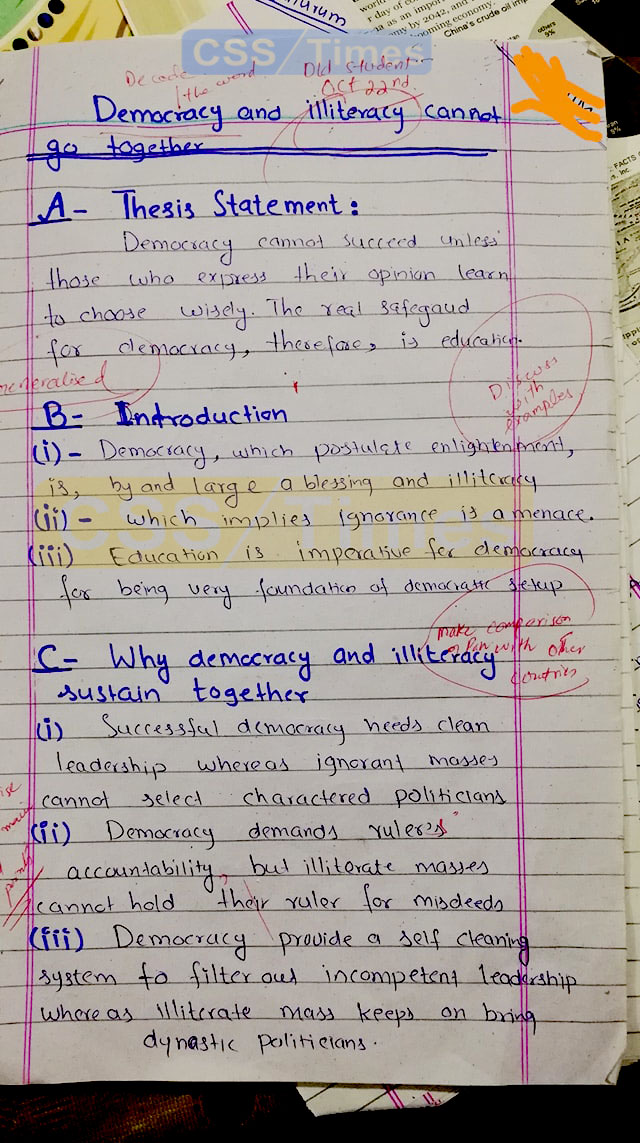 urum
F day of c
ia as an impor
my by 2042, and
ooming economy.
China's crude oil imp
others
9%
CSS Times
Decode the word
Old student
Oct 22nd.
Democracy and illiteracy cannot
go together
FACTS
, Inc
A- Thesis Statement:
Democracy cannot succeed unless
those who express their opinion learn
to choose wisely. The real safegaud
for democracy, therefore, is education.
generalised
Discuss
with
examples
B- Introduction
(i)- Democracy, which postulate enlightenment,
is, by and large a blessing and illiteracy
CSS Times
(ii)- which implies ignorance is a menace.
(iii) Education is imperative for democracy
for being very foundation of democratic setup
make comparison
of Pak with other
countries
C- Why democracy and illiteracy
sustain together
(i) Successful democracy needs clean
leadership whereas ignorant masses
cannot select charactered politicians
(ii) Democracy demands ruler's
accountability, but illiterate masses
cannot hold their ruler for misdeeds
points
(iii) Democracy provide a self cleaning
system to filter out incompetent leadership
whereas illiterate mass keeps on bring
dynastic politicians.